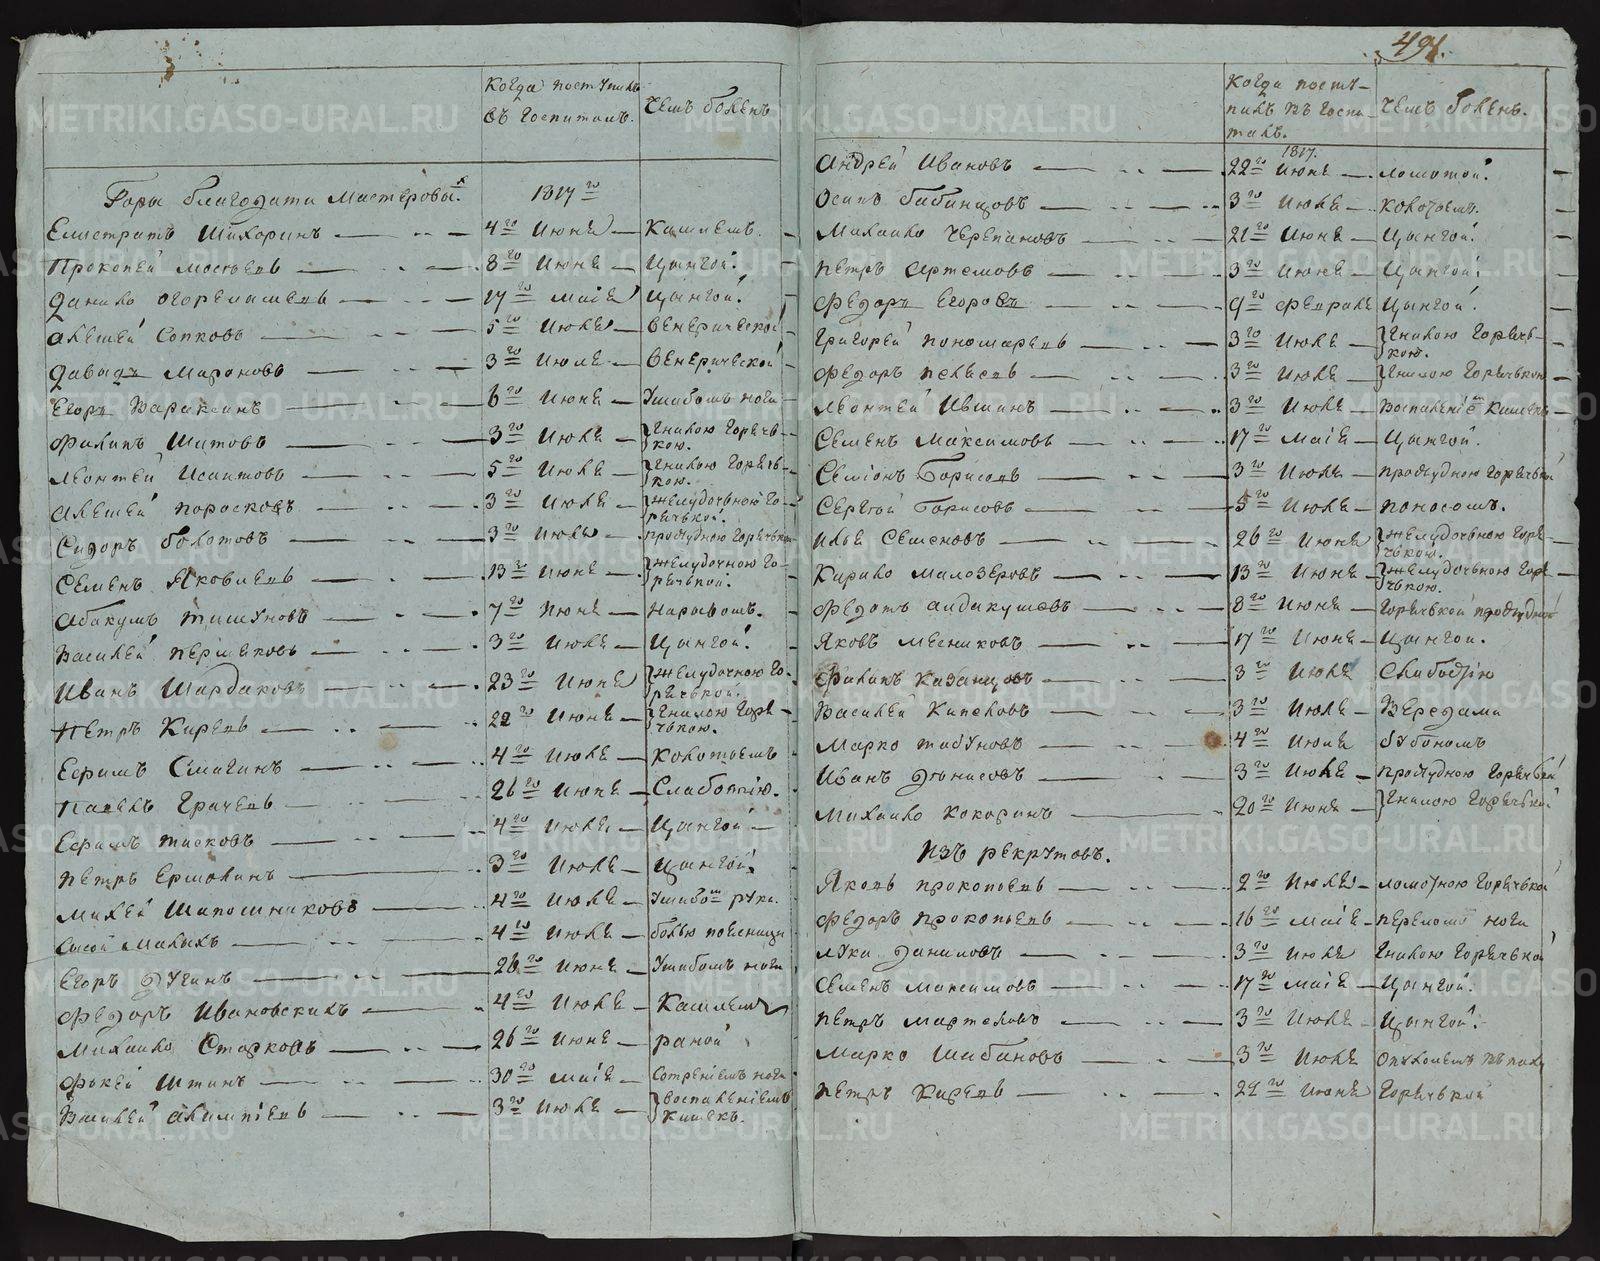 494.
Когда поступилъ
въ госпиталь.
Чемъ боленъ
Горы благодати Мастеровых.
1817го
Елистратъ Шихоринъ 4го Июня Кашлемъ.
Прокопей 8го Июня Цынгой.
Данило 17го Маия Цынгой.
Алексей Сопковъ 5го Июля Венерической
Давыдъ Мароновъ 3го Июля Венерической
Егоръ Вараксинъ 6го Июня Ушибомъ ноги
Филипъ Шитовъ 3го Июля Гнилою горячь-
кою.
Леонтей Исаптовъ 5го Июля Гнилою горячь-
кою.
Алексей Поросковъ 3го Июля Желудочьной го-
рячькой.
Сидоръ Болотовъ 3го Июля простудною горячькою
Семенъ Яковлевъ 13го Июня Желудочною го-
рячькой.
Абакумъ Тишуновъ 7го Июня Нарывомъ.
Василей Першековъ 3го Июля Цынгой.
Иванъ Шардаковъ 23го Июня Желудочною го-
рячькой.
Петръ Киревъ 22го Июня Гнилою горя-
чькою.
Ефимъ Смагинъ 4го Июля Колотьемъ
Павелъ Грачевъ 26го Июня Слабостию.
Ефимъ Тисковъ 4го Июля Цынгой
Петръ Ершовинъ 3го Июля Цынгой.
Михей Шапошниковъ 4го Июля Ушибом руки.
Сысой Малыхъ 4го Июля болью поесницы
Егоръ Дугинъ 26го Июня Ушибомъ ноги
Федоръ Ивановскихъ 4го Июля Кашлемъ
Михайло Старковъ 26го Июня раной
Фокей Штинъ 30го Маия Сотрениемъ ноги
Василей Алимпиевъ 3го Июля Воспалениемъ
Кишекъ.
Когда посту-
пилъ въ госпи-
таль.
Чемъ боленъ.
1817.
Андрей Ивановъ 22го Июня ломотой.
Осипъ Бабинцовъ 3го Июля колотьемъ.
Михайло Черепановъ 21го Июня Цынгой.
Петръ Артемовъ 3го Июня Цынгой.
Федоръ Егоровъ 9го Февраля Цынгой.
Григорей Пономаревъ 3го Июля Гнилою горячь-
кою.
Федоръ Пелевевъ 3го Июля Гнилою горячькою
Леонтей Ившинъ 3го Июля Воспалением кишекъ
Семенъ Максимовъ 17го Маия Цынгой.
Семионъ Борисовъ 3го Июля простудною горячькой
Сергей Борисовъ 5го Июля Поносомъ.
Илья Семеновъ 26го Июня Желудочьною горя-
чькою.
Кирило Малозеровъ 13го Июня Желудочьною горя-
чькою.
Федотъ Андакушовъ 8го Июня горячькой простудной
Яковъ Месниковъ 17го Июня Цынгой.
Филипъ Казанцовъ 3го Июля Слабостию
Василей Кипеловъ 3го Июля Вередами
Марко Табуновъ 4го Июля бубономъ
Иванъ Денисовъ 3го Июля простудною горячькой
Михайло Кокоринъ 20го Июня Гнилою горячькой
Изъ рекрутовъ.
Яковъ Прокопьевъ 2го Июля ломотною горячькой
Федоръ Прокопьевъ 16го Маия переломъ ноги
Лука Даниловъ 3го Июля Гнилою горячькой
Семенъ Максимовъ 17го Маия Цынгой.
Петръ Мартеловъ 3го Июля Цынгой.
Марко Шабановъ 3го Июля опухолемъ въ паху
Петръ Киревъ 22го Июня Горячькой
METRIKI.GASO-URAL.RU